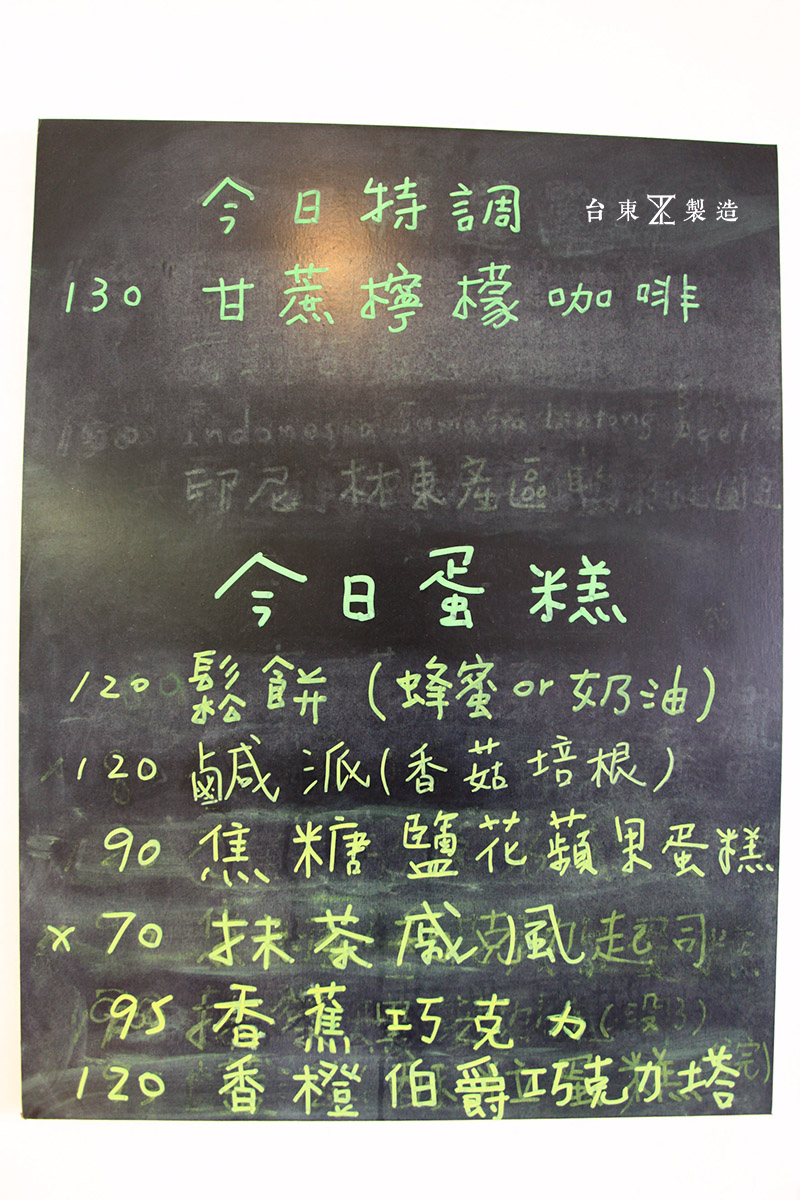 今日特調
台東製造
130 甘蔗檸檬咖啡
150 Indonesia Sumatra Lintong
印尼 林東產區
今日蛋糕
120 鬆餅(蜂蜜or奶油)
120 鹹派(香菇培根)
90 焦糖鹽花蘋果蛋糕
x 70 抹茶戚風
95 香蕉巧克力
120 香橙伯爵巧克力塔